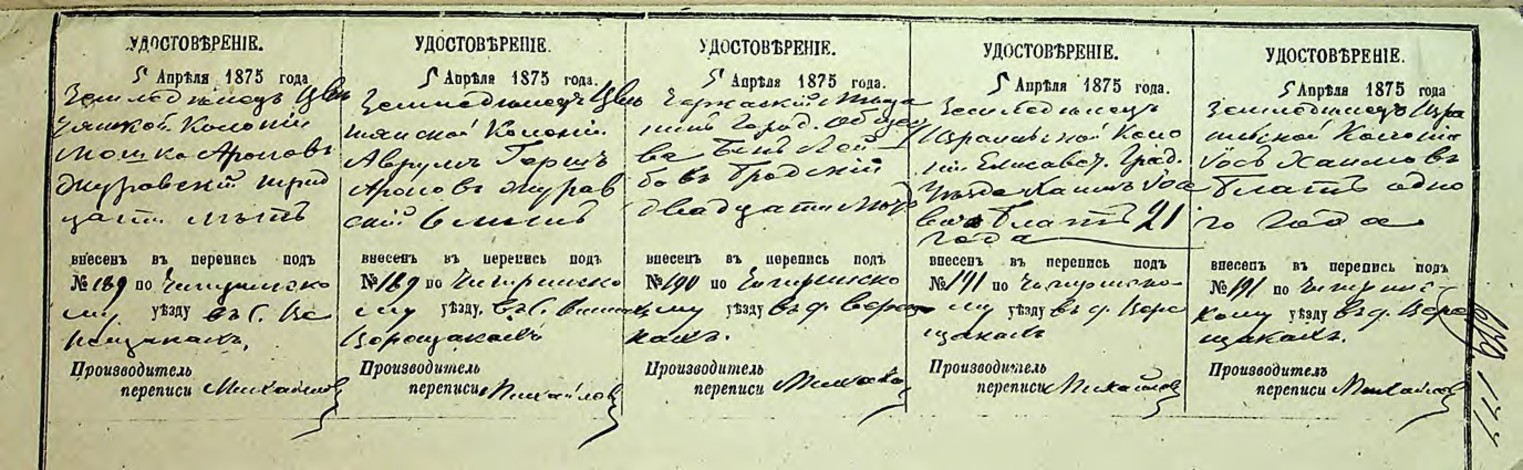 УДОСТОВѢРЕНІЕ.
5 Апрѣля 1875 года
Земледѣлецъ
Колоніи
Мошко Ароновъ
Журовскій трид
цати лѣтъ
внесенъ въ перепись подъ
№ 189 по Чигиринско
му уѣзду въ с. Ве
рещакахъ,
Производитель
переписи Михайловъ
УДОСТОВѢРЕНІЕ.
5 Апрѣля 1875 года.
Земледѣлецъ
Колоніи
Аврумъ Гершъ
Ароновъ Журав
скій 6 лѣтъ
внесенъ въ перепись подъ
№ 189 по Чигиринско
му уѣзду, въ с.
Верещакахъ
Производитель
переписи Михайловъ
УДОСТОВѢРЕНІЕ.
5 Апрѣля 1875 года.
Черкаскій мѣща
нинъ Город. Общес
ва Лей
бовъ Бродскій
двадцати
внесенъ въ перепись подъ
№ 190 по Чигиринско
му уѣзду въ д. Верещ
кахъ.
Производитель
переписи
УДОСТОВѢРЕНІЕ.
5 Апрѣля 1875 года.
Земледѣлецъ
Израильской Коло
ніи Елисавет. Град.
Уѣзда Хаимъ Іос
Блатъ 21
года
внесенъ въ перепись подъ
№ 191 по Чигиринско-
му уѣзду въ д. Вере
щакахъ
Производитель
переписи Михайловъ
УДОСТОВѢРЕНІЕ.
5 Апрѣля 1875 года
Земледѣлецъ Изра
ильской Колоніи
Іось Хаимовъ
Блатъ одно
го года
внесенъ въ перепись подъ
№ 191 по Чигиринс-
кому уѣзду въ д. Вере
щакахъ.
Производитель
переписи Михайловъ